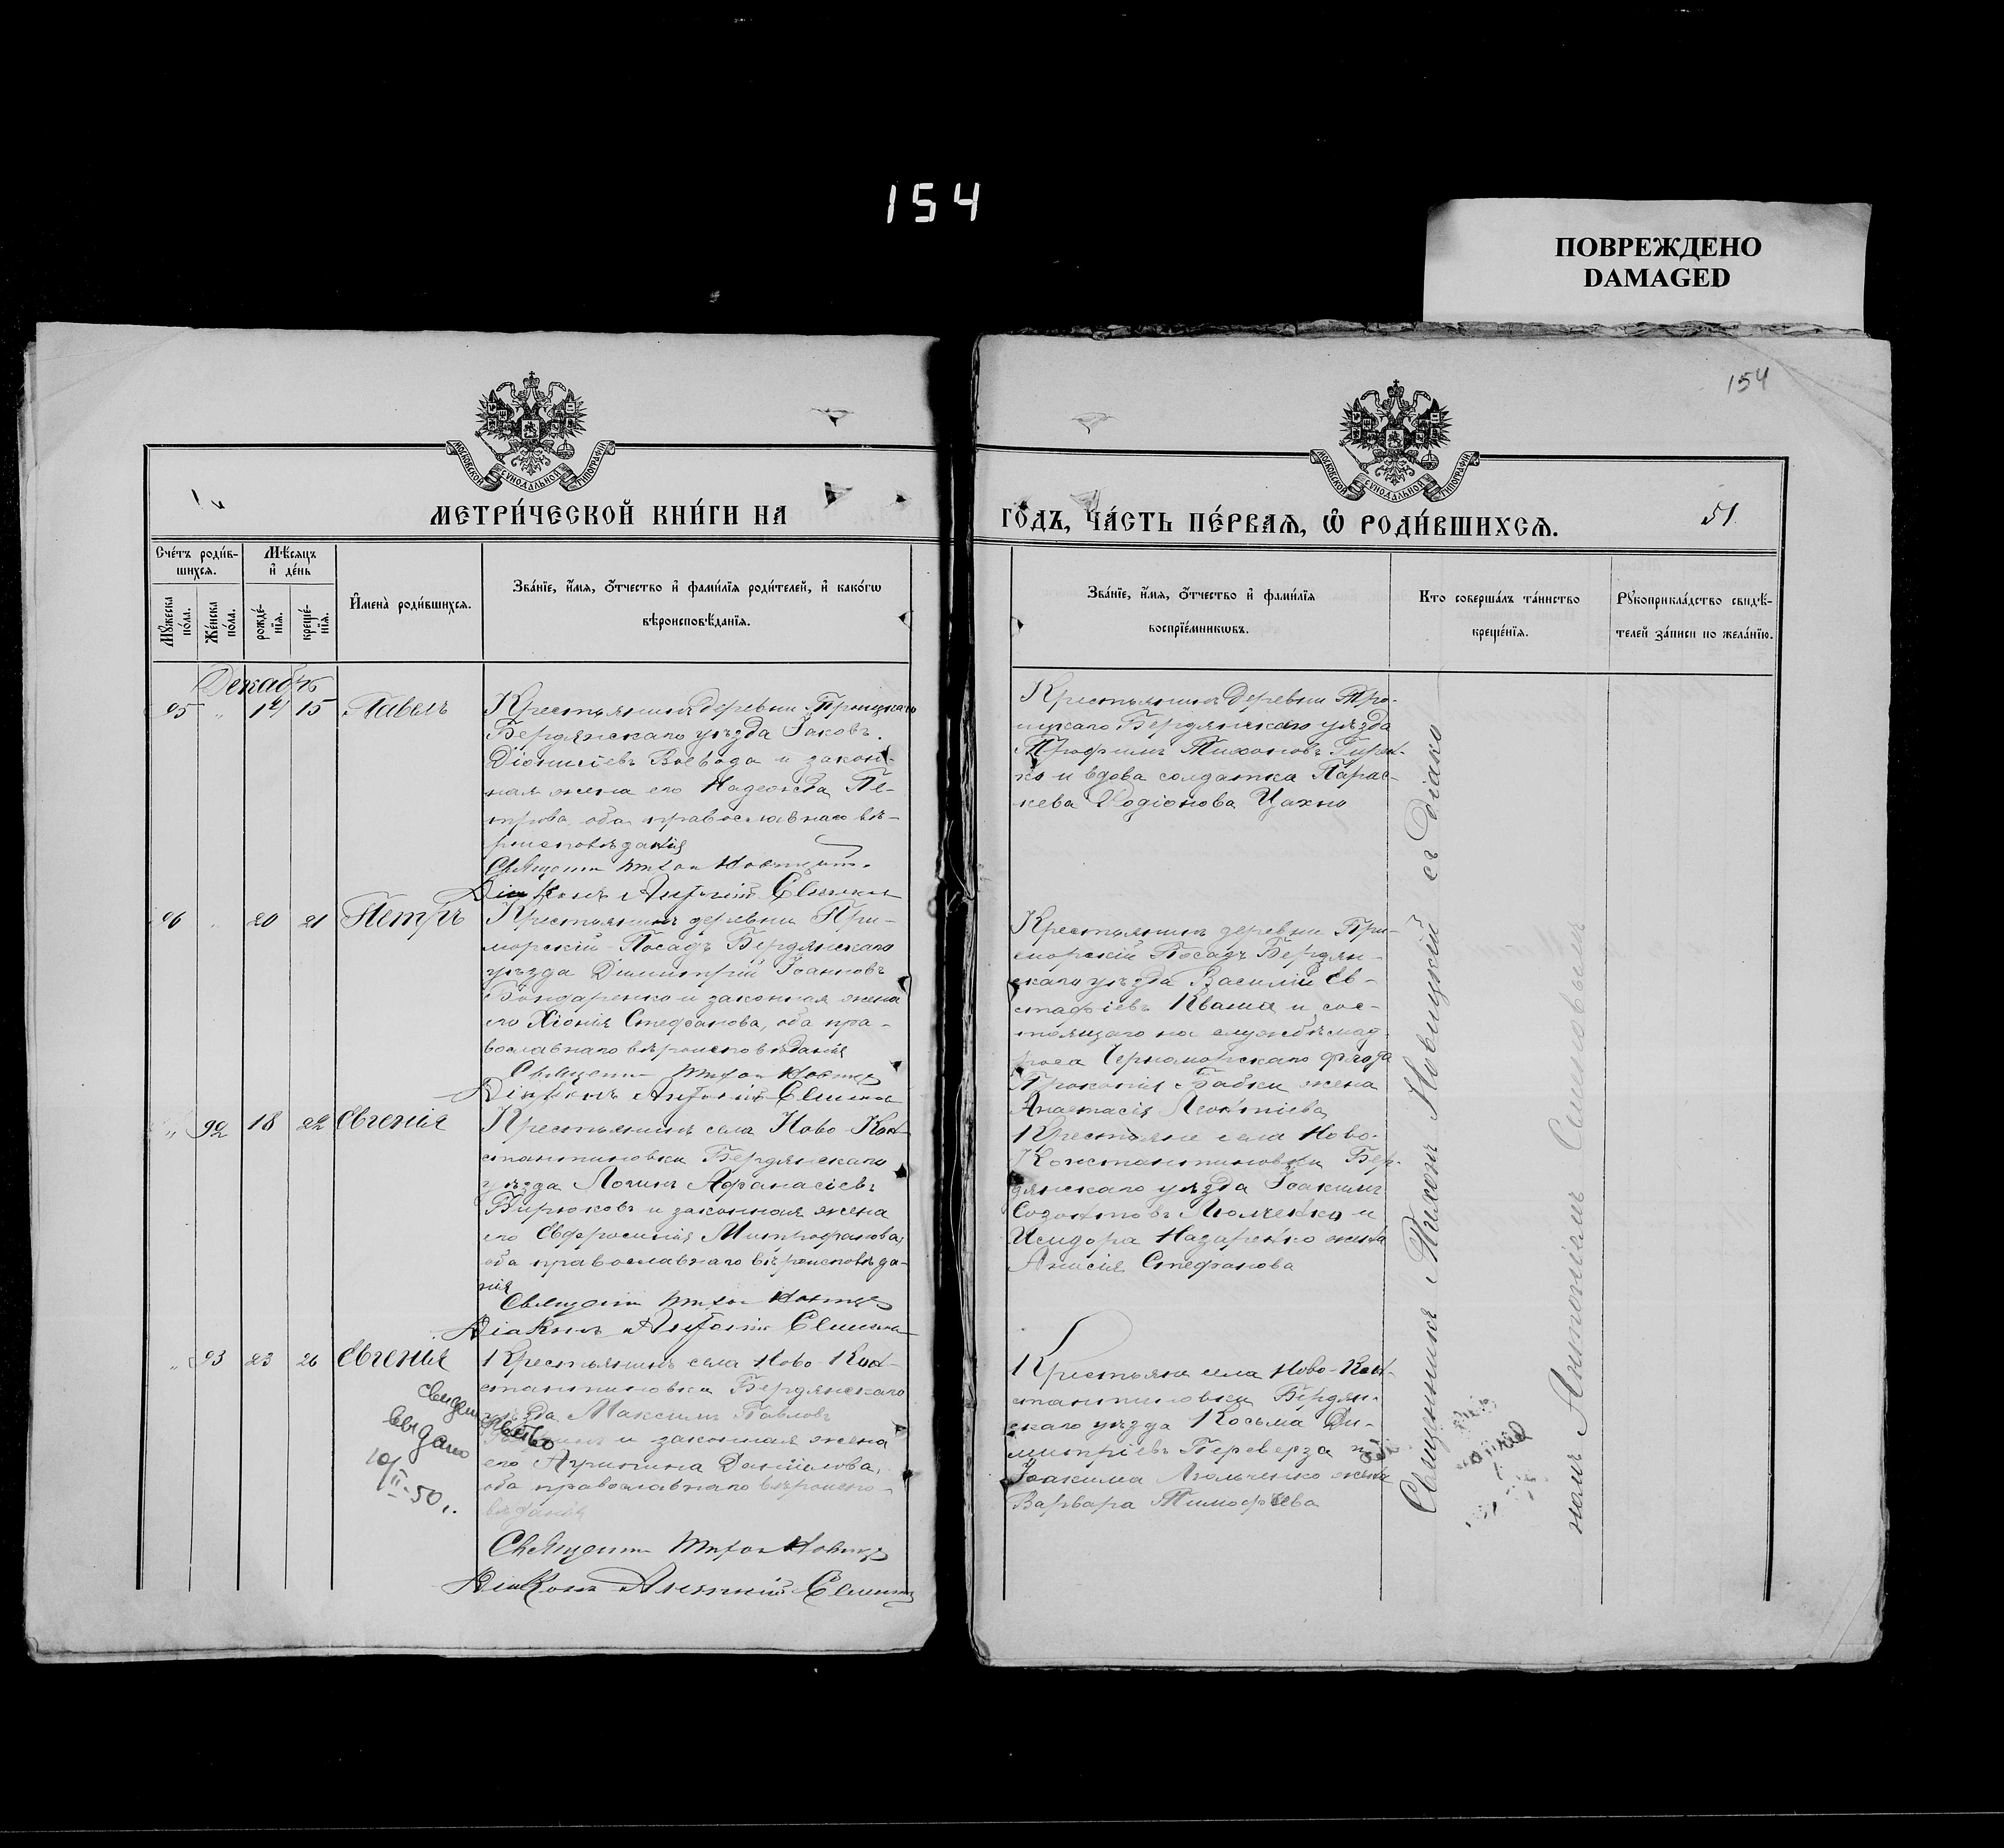 154
ПОВРЕЖДЕНО
DAMAGED
154
МОСКОВСКОЙ СѴНОДАЛЬНОЙ ТИПОГРАФІИ
МОСКОВСКОЙ СѴНОДАЛЬНОЙ ТИПОГРАФІИ
МЕТРИ́ЧЕСКОЙ КНИ́ГИ НА
ГО́ДЪ, ЧА́СТЬ ПЕ́РВАѦ, Ѡ҆ РОДИ́ВШИХСѦ.
51.
Сче́тъ роди́в-
шихсѧ.
Мѣ́сѧцъ
и҆ де́нь
Мꙋ́жеска
по́ла.
Же́нска
по́ла.
рожде́-
нїѧ.
креще́-
нїѧ.
И҆мена̀ роди́вшихсѧ.
Зва́нїе, и҆́мѧ, ѻ҆́тчество и҆ фами́лїѧ роди́телей, и҆ како́гѡ
вѣроисповѣ́данїѧ.
Зва́нїе, и҆́мѧ, ѻ҆́тчество и҆ фами́лїѧ
воспрїе́мникѡвъ.
Кто соверша́лъ та́инство
креще́нїѧ.
Рꙋкоприкла́дство свидѣ́-
телей за́писи по жела́нїю.
Декабрь
95 " 14 15 Павелъ
Крестьянинъ деревни Троицкаго
Бердянскаго уѣзда Іаковъ
Діонисіевъ Воевода и закон-
ная жена его Надежда Пе-
трова, оба православнаго вѣ-
роисповѣданія
Священни Тихон Новицкі
Діаконъ Антоній Семенов
Крестьянинъ деревни Тро-
ицкаго Бердянскаго уѣзда
Трофимъ Тихоновъ
ко и вдова солдатка Парас-
кева Родіонова Цахно
96 " 20 21 Петръ
Крестьянинъ деревни При-
морскій Посадъ Бердянскаго
уѣзда Димитрій Іоанновъ
Бондаренко и законная жена
его Хіонія Стефанова, оба пра-
вославнаго вѣроисповѣданія
Священни Тихон Новиц
Діаконъ Антоній Семенов
Крестьянинъ деревни При-
морскій Посадъ Бердян-
скаго уѣзда Василій Ев-
стафіевъ Кваша и сос-
тоящаго на службѣ мат-
роса Черноморскаго флота
Прокопія Бабки жена
Анастасія Леонтіева
" 92 18 22 Евгенія
Крестьянинъ села Ново-Кон-
стантиновки Бердянскаго
уѣзда Логинъ Аѳанасіевъ
Бирюковъ и законная жена
его Евфросинія Митрофанова,
оба православнаго вѣроисповѣда-
нія
Священни Тихон Новиц
Діаконъ Антоній Семенов
Крестьяне села Ново-
Константиновки Бер-
дянскаго уѣзда Іоакимъ
Созонтовъ Люлченко и
Исидора Назаренко жена
Анисія Стефанова
" 93 23 26 Евгенія
Крестьянинъ села Ново-Кон-
стантиновки Бердянскаго
уѣзда Максимъ Павловъ
и законная жена
его Агрипина Даніилова,
оба православнаго вѣроиспо-
вѣданія
Священни Тихон Новиц
Діаконъ Антоній Семенов
свидетельство
выдано
10/II-50 г.
Крестьяне села Ново-Кон-
стантиновки Бердян-
скаго уѣзда Косьма Ди-
митріевъ Переверза и
Іоакима Люльченко жена
Варвара Тимофѣева
Священникъ Тихонъ Новицкій съ Діако
номъ Антоніемъ Семеновымъ